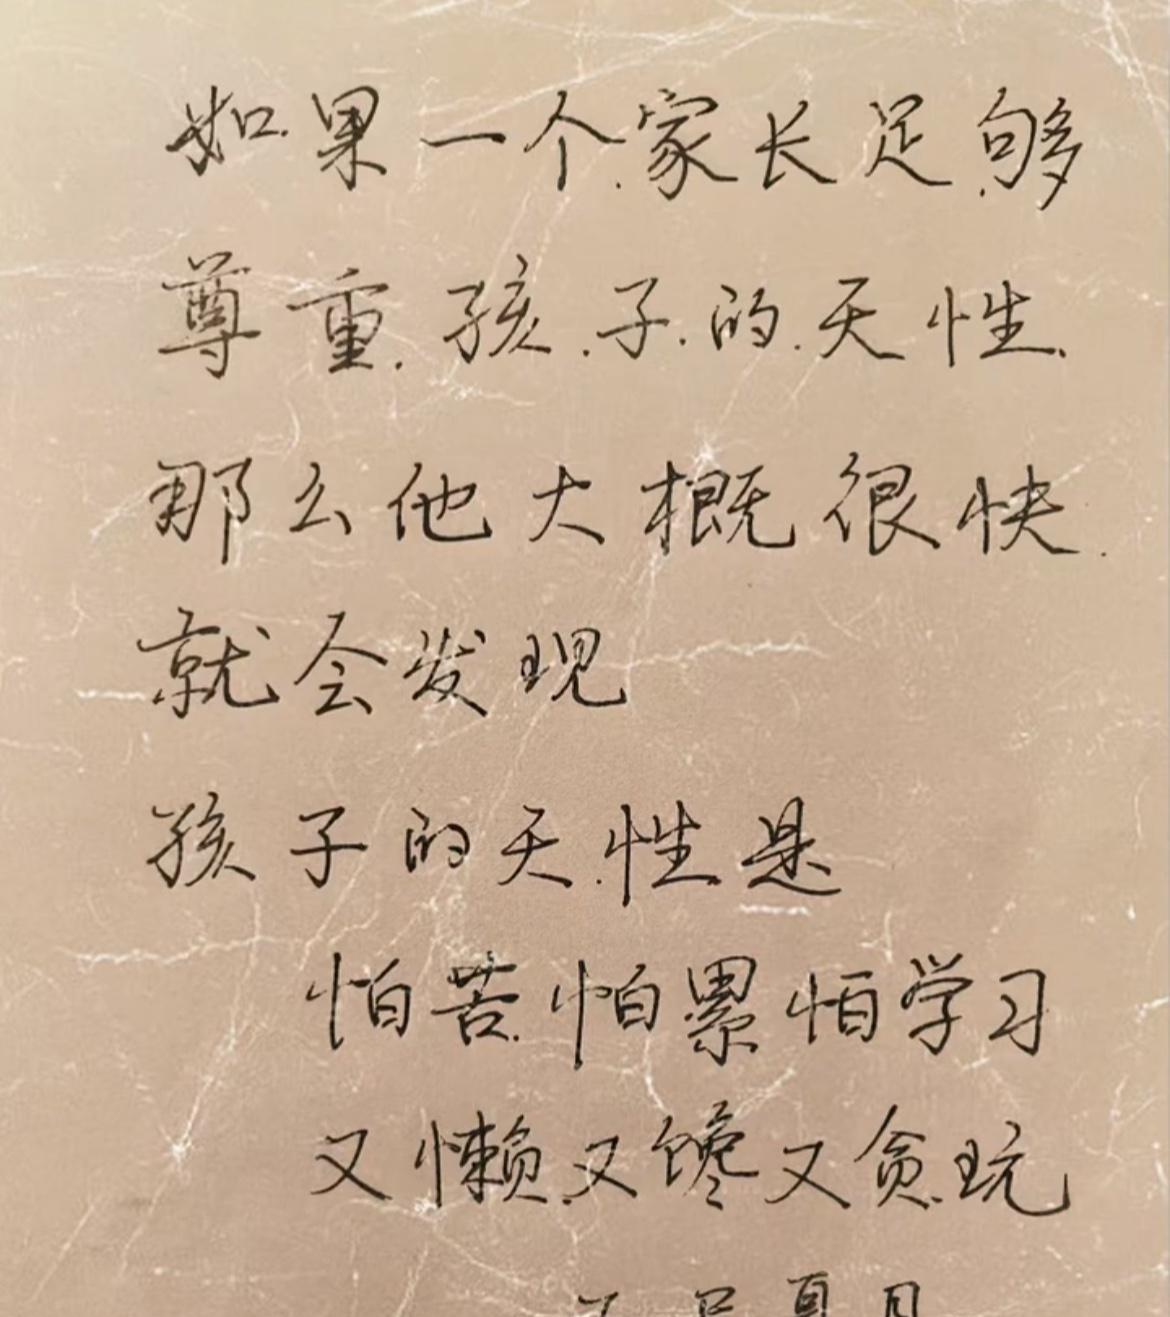 如果一个家长足够
尊重孩子的天性
那么他大概很快
就会发现
孩子的天性是
怕苦怕累怕学习
又懒又馋又贪玩